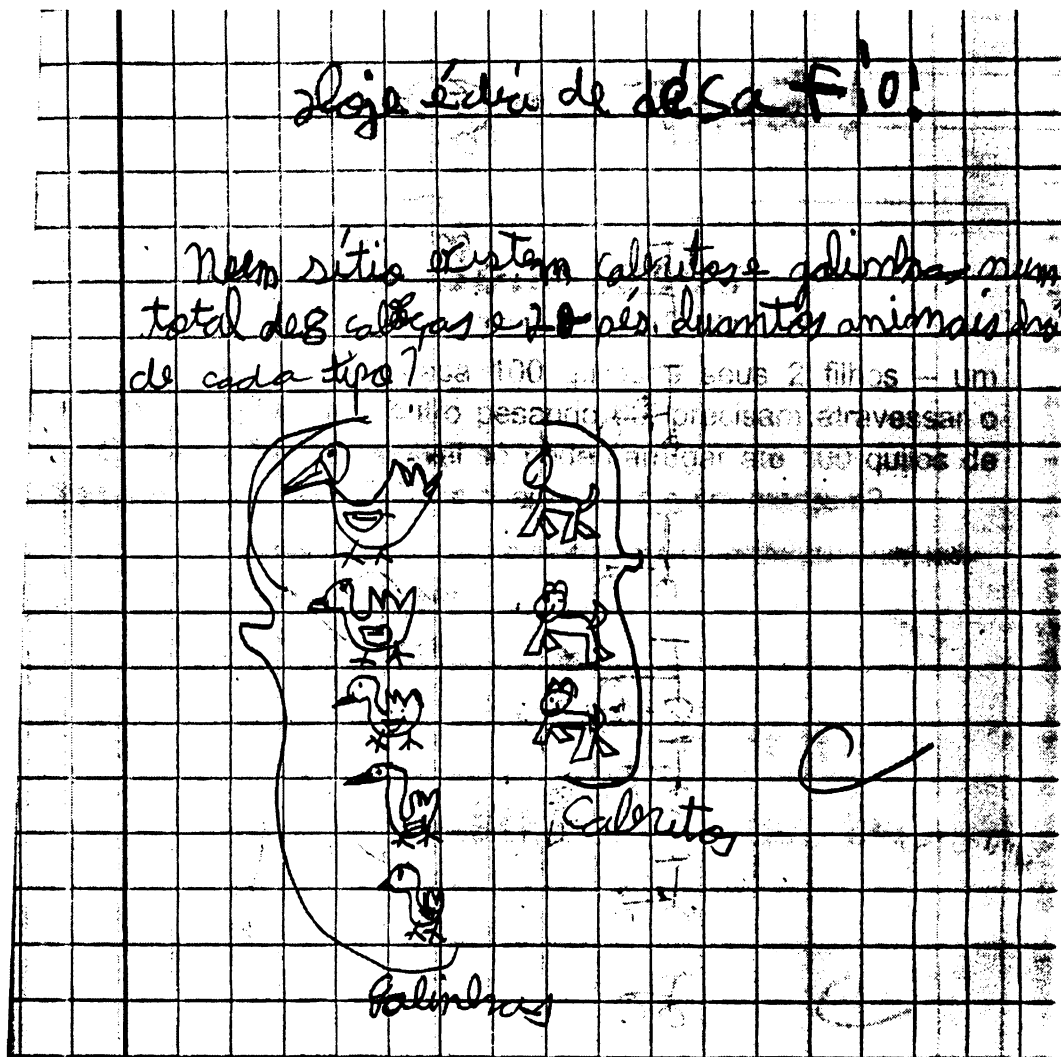 Hoje é dia de desaFio!
Num sítio existem cabritos e galinhas num
total de 8 cabeças e 20 pés. Quantos animais há
de cada tipo?
100 seus 2 filhos – um
pesando precisam atravessar o
até 100 quilos de
Cabritos
Galinhas